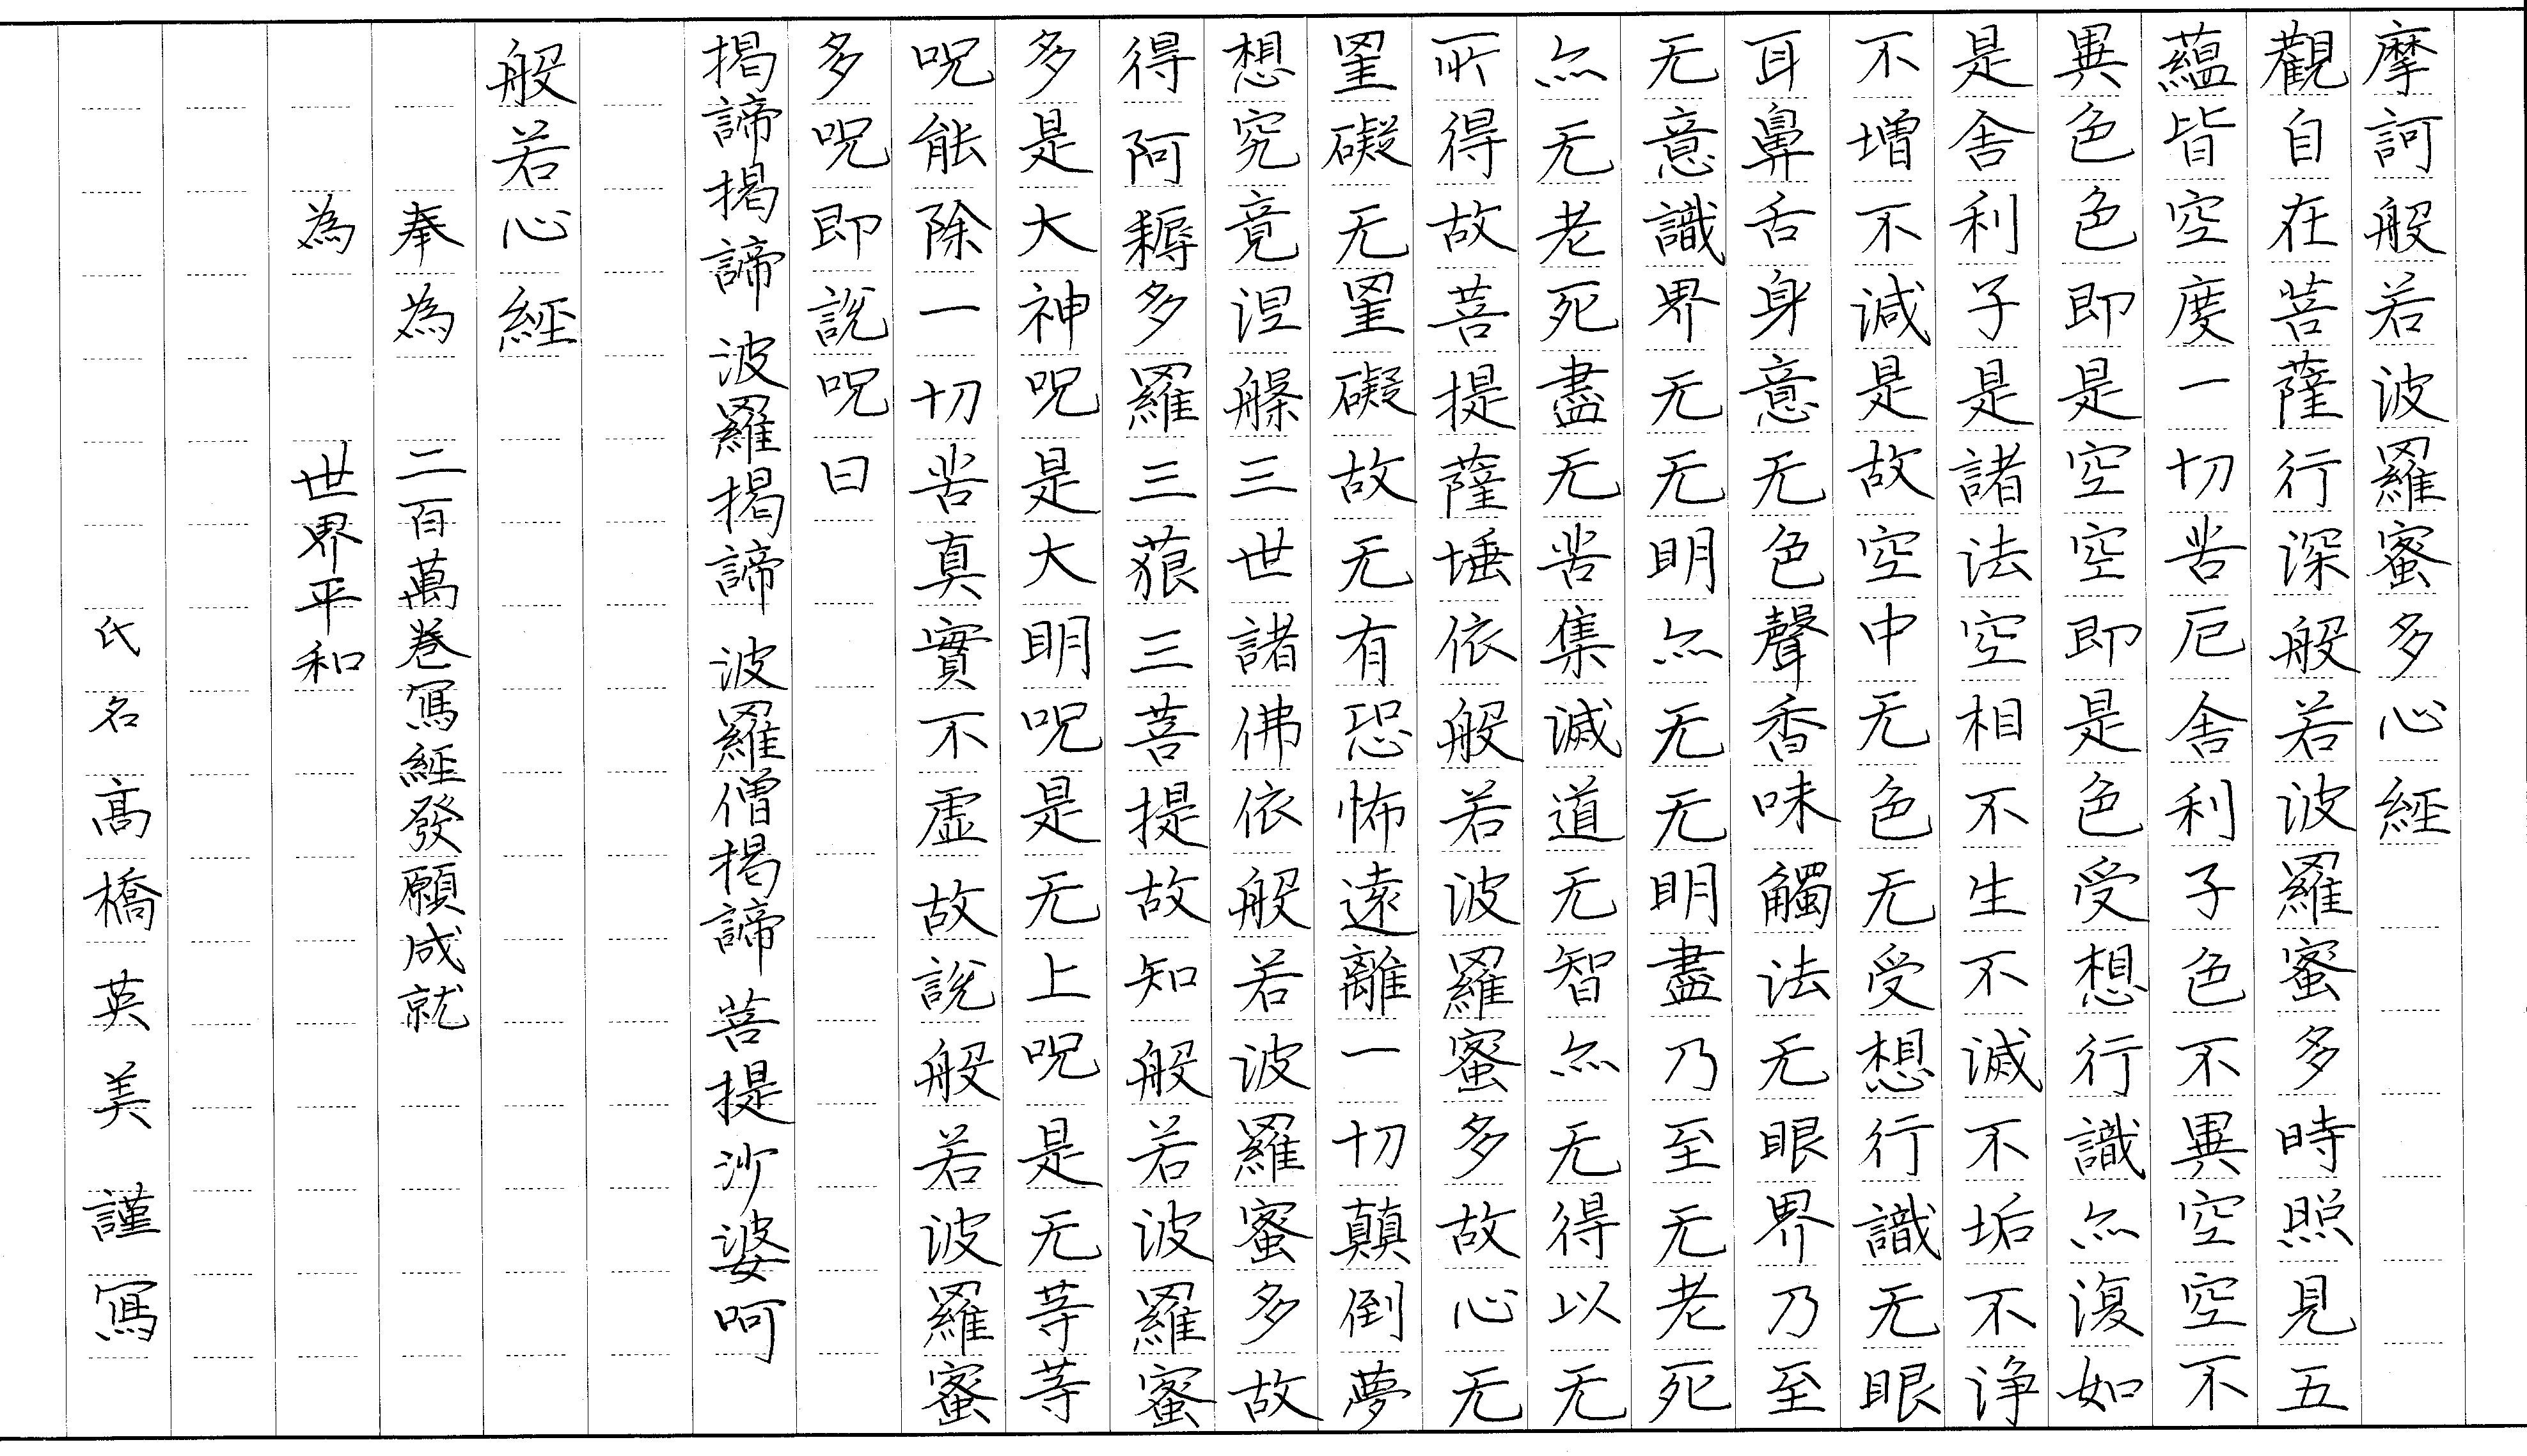 摩訶般若波羅蜜多心經
觀自在菩薩行深般若波羅蜜多時照見五
蘊皆空度一切苦厄舍利子色不異空空不
異色色即是空空即是色受想行識亦復如
是舍利子是諸法空相不生不滅不垢不淨
不增不減是故空中无色无受想行識无眼
耳鼻舌身意无色聲香味觸法无眼界乃至
无意識界无无明亦无无明盡乃至无老死
亦无老死盡无苦集滅道无智亦无得以无
所得故菩提薩埵依般若波羅蜜多故心无
罣礙无罣礙故无有恐怖遠離一切顛倒夢
想究竟涅槃三世諸佛依般若波羅蜜多故
得阿耨多羅三藐三菩提故知般若波羅蜜
多是大神呪是大明呪是无上呪是无等等
呪能除一切苦真實不虛故說般若波羅蜜
多呪即說呪曰
揭諦揭諦 波羅揭諦 波羅僧揭諦 菩提沙婆呵
般若心經
奉為 二百萬卷寫經發願成就
為 世界平和
氏名高橋英美 謹寫